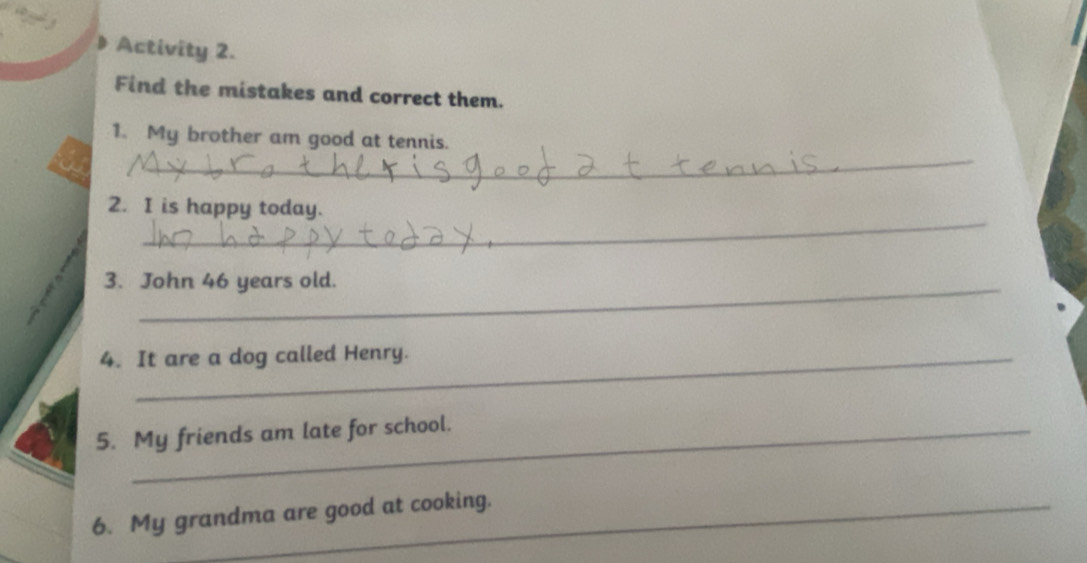 Activity 2.
Find the mistakes and correct them.
1. My brother am good at tennis.
My brother is good at tennis.
2. I is happy today.
Im happy today.
3. John 46 years old.
4. It are a dog called Henry.
5. My friends am late for school.
6. My grandma are good at cooking.